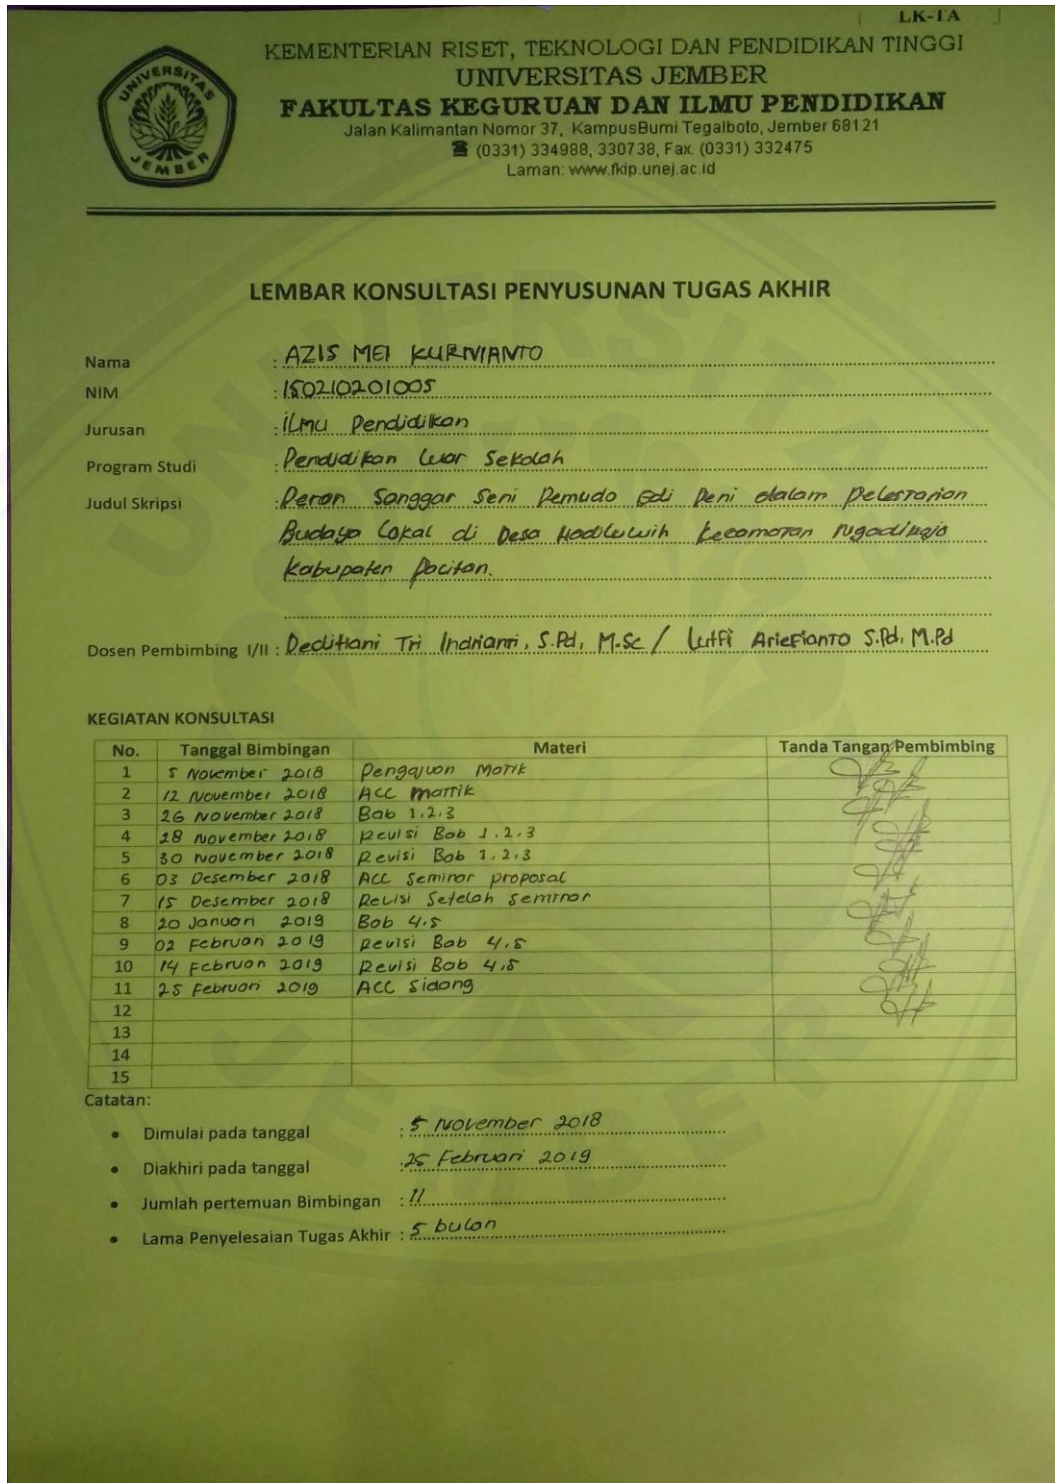 LK-TA
KEMENTERIAN RISET, TEKNOLOGI DAN PENDIDIKAN TINGGI
UNIVERSITAS JEMBER
FAKULTAS KEGURUAN DAN ILMU PENDIDIKAN
Jalan Kalimantan Nomor 37, KampusBumi Tegalboto, Jember 68121
☎ (0331) 334988, 330738, Fax. (0331) 332475
Laman: www.fkip.unej.ac.id
UNIVERSITAS JEMBER
LEMBAR KONSULTASI PENYUSUNAN TUGAS AKHIR
Nama : AZIS MEI KURNIANTO
NIM : 150210201005
Jurusan : Ilmu Pendidikan
Program Studi : Pendidikan Luar Sekolah
Judul Skripsi : Peran Sanggar Seni Pemudo Edi Peni dalam pelestarian
Budaya Lokal di Desa Hadiluwih Kecamatan Ngadirojo
Kabupaten Pacitan.
Dosen Pembimbing I/II : Deditiani Tri Indrianti, S.Pd, M.Sc / Lutfi Ariefianto S.Pd, M.Pd
KEGIATAN KONSULTASI
No. Tanggal Bimbingan Materi Tanda Tangan Pembimbing
1 5 November 2018 Pengajuan Matik
2 12 November 2018 ACC matrik
3 26 November 2018 Bab 1.2.3
4 28 November 2018 Revisi Bab 1.2.3
5 30 November 2018 Revisi Bab 1.2.3
6 03 Desember 2018 ACC Seminar proposal
7 15 Desember 2018 Revisi Setelah Seminar
8 20 Januari 2019 Bab 4.5
9 02 Februari 2019 Revisi Bab 4.5
10 14 Februari 2019 Revisi Bab 4.5
11 25 Februari 2019 ACC Sidang
12
13
14
15
Catatan:
• Dimulai pada tanggal : 5 November 2018
• Diakhiri pada tanggal : 25 Februari 2019
• Jumlah pertemuan Bimbingan : 11
• Lama Penyelesaian Tugas Akhir : 5 bulan